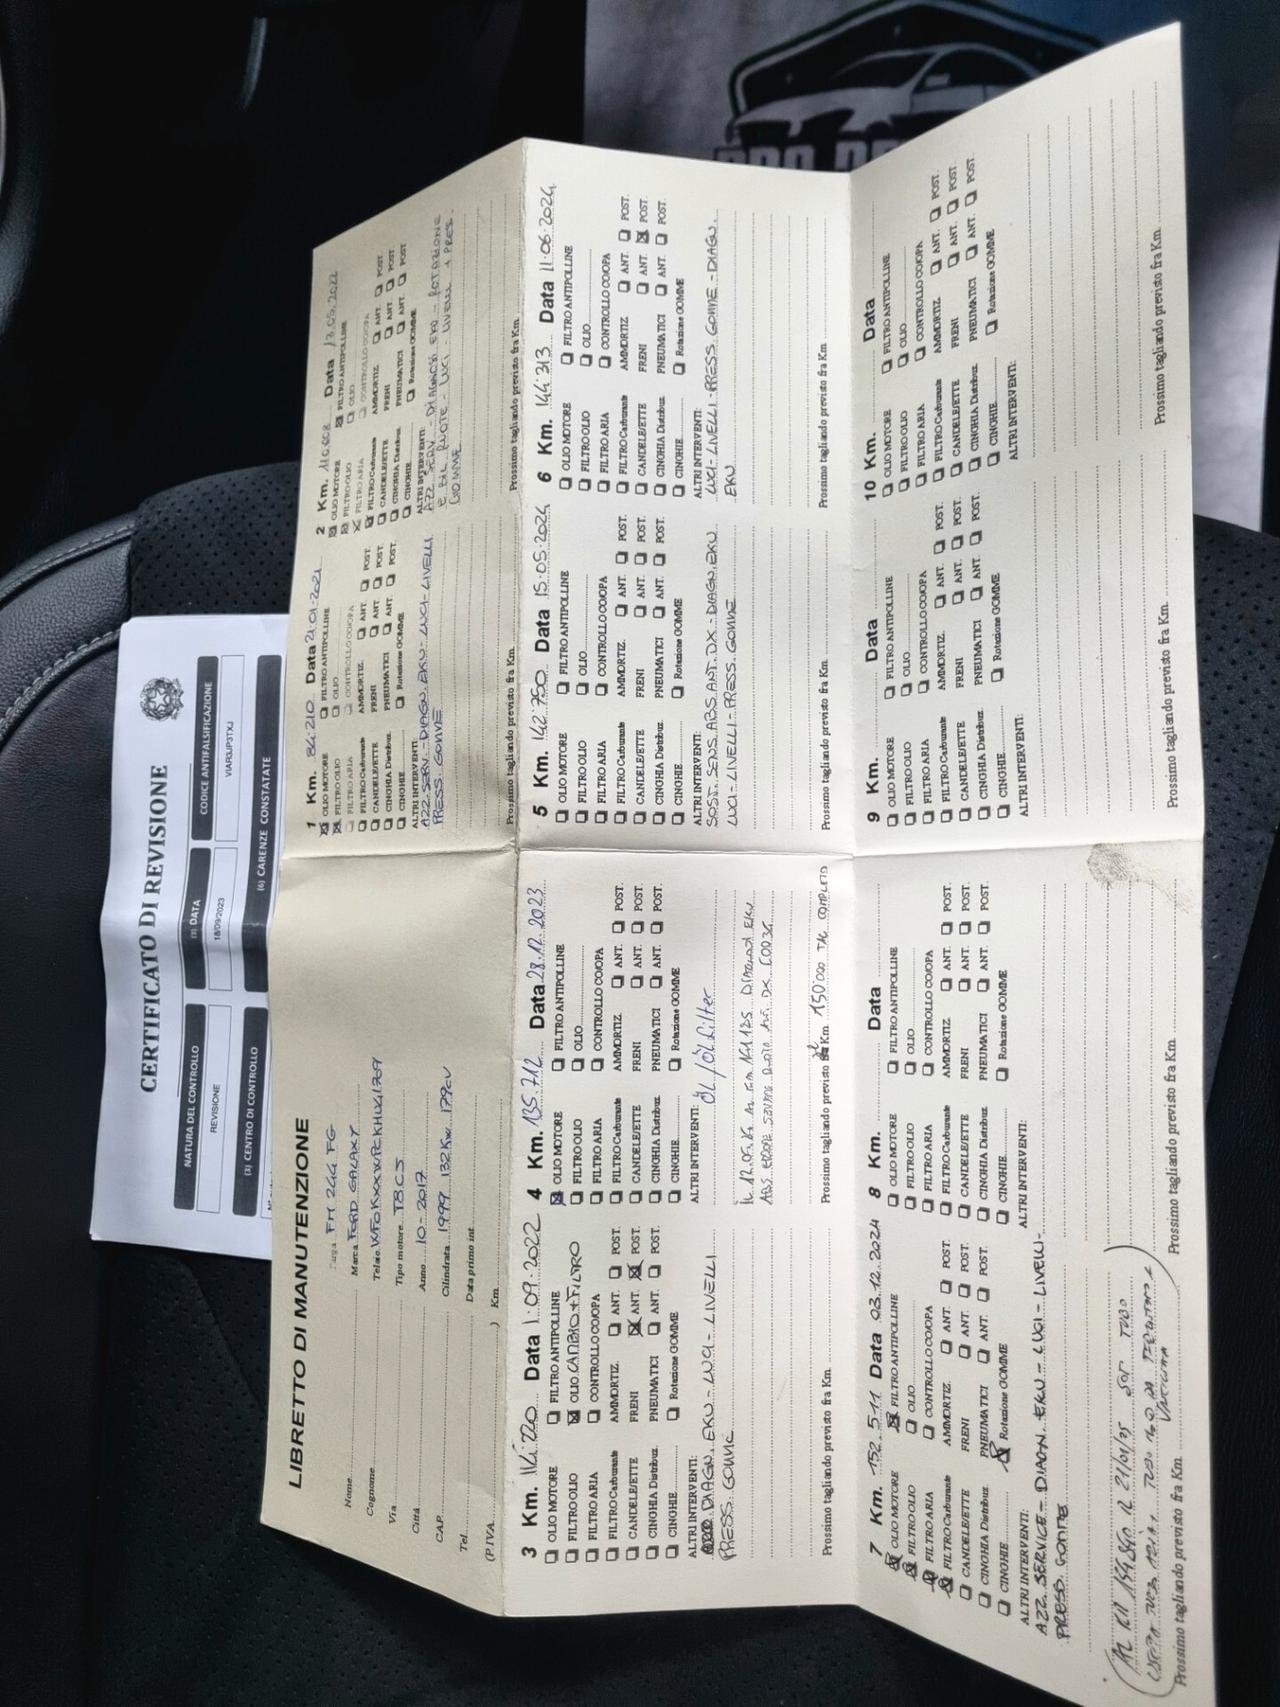 CERTIFICATO DI REVISIONE
NATURA DEL CONTROLLO
(3) DATA
CODICE ANTIFALSIFICAZIONE
REVISIONE
18/09/2023
VIAR3JP3TXJ
(3) CENTRO DI CONTROLLO
(6) CARENZE CONSTATATE
LIBRETTO DI MANUTENZIONE
Nome
Targa FM 244 FG
Cognome
Marca FORD GALAXY
Via
Telaio
Città
Tipo motore T8CS
CAP.
Anno 10-2017
Tel
Cilindrata 1999 132KW 179CV
(P.IVA ) Km.
Data primo int.
1 Km. 84.210 Data 21.01.2021
OLIO MOTORE
FILTRO ANTIPOLLINE
FILTRO OLIO
OLIO
FILTRO ARIA
CONTROLLO CO/OPA
FILTRO Carburante
AMMORTIZ. ANT. POST.
CANDELE/ETTE
FRENI ANT. POST.
CINGHIA Distribuz.
PNEUMATICI ANT. POST.
CINGHIE
Rotazione GOMME
ALTRI INTERVENTI:
AZZ. SERV. - DIAGN. EKU - LUCI - LIVELLI
PRESS. GOMME
Prossimo tagliando previsto fra Km.
2 Km. Data 13.05.2022
OLIO MOTORE
FILTRO ANTIPOLLINE
FILTRO OLIO
OLIO
FILTRO ARIA
CONTROLLO CO/OPA
FILTRO Carburante
AMMORTIZ. ANT. POST
CANDELE/ETTE
FRENI ANT POST
CINGHIA Distribuz.
PNEUMATICI ANT. POST
CINGHIE
Rotazione GOMME
ALTRI INTERVENTI:
AZZ SERV - DIAGNOSI EKU - ROTAZIONE
E BIL RUOTE - LUCI - LIVELLI + PRES.
GOMME
Prossimo tagliando previsto fra Km.
3 Km. 116.220 Data 1.09.2022
OLIO MOTORE
FILTRO ANTIPOLLINE
FILTRO OLIO
OLIO CAMBIO+FILTRO
FILTRO ARIA
CONTROLLO CO/OPA
FILTRO Carburante
AMMORTIZ. ANT. POST.
CANDELE/ETTE
FRENI ANT. POST.
CINGHIA Distribuz.
PNEUMATICI ANT. POST.
CINGHIE
Rotazione GOMME
ALTRI INTERVENTI:
DIAGN. EKU - LUCI - LIVELLI
PRESS. GOMME
Prossimo tagliando previsto fra Km.
4 Km. 135.712 Data 28.12.2023
OLIO MOTORE
FILTRO ANTIPOLLINE
FILTRO OLIO
OLIO
FILTRO ARIA
CONTROLLO CO/OPA
FILTRO Carburante
AMMORTIZ. ANT. POST.
CANDELE/ETTE
FRENI ANT. POST.
CINGHIA Distribuz.
PNEUMATICI ANT. POST.
CINGHIE
Rotazione GOMME
ALTRI INTERVENTI:
Öl/Ölfilter
Prossimo tagliando previsto Km. 150'000 TAG COMPLETO
5 Km. 142.750 Data 15.05.2024
OLIO MOTORE
FILTRO ANTIPOLLINE
FILTRO OLIO
OLIO
FILTRO ARIA
CONTROLLO CO/OPA
FILTRO Carburante
AMMORTIZ. ANT. POST.
CANDELE/ETTE
FRENI ANT. POST.
CINGHIA Distribuz.
PNEUMATICI ANT. POST.
CINGHIE
Rotazione GOMME
ALTRI INTERVENTI:
SOST. SENS. ABS. ANT. DX - DIAGN. EKU
LUCI - LIVELLI - PRESS. GOMME
Prossimo tagliando previsto fra Km.
6 Km. 144.313 Data 11.06.2024
OLIO MOTORE
FILTRO ANTIPOLLINE
FILTRO OLIO
OLIO
FILTRO ARIA
CONTROLLO CO/OPA
FILTRO Carburante
AMMORTIZ ANT. POST.
CANDELE/ETTE
FRENI ANT. POST.
CINGHIA Distribuz.
PNEUMATICI ANT. POST.
CINGHIE
Rotazione GOMME
ALTRI INTERVENTI:
LUCI - LIVELLI - PRESS. GOMME - DIAGN.
EKU
Prossimo tagliando previsto fra Km.
7 Km. 152.511 Data 03.12.2024
OLIO MOTORE
FILTRO ANTIPOLLINE
FILTRO OLIO
OLIO
FILTRO ARIA
CONTROLLO CO/OPA
FILTRO Carburante
AMMORTIZ. ANT. POST.
CANDELE/ETTE
FRENI ANT. POST.
CINGHIA Distribuz
PNEUMATICI ANT. POST.
CINGHIE
Rotazione GOMME
ALTRI INTERVENTI:
AZZ. SERVICE - DIAGN. EKU - LUCI - LIVELLI -
PRESS. GOMME
Prossimo tagliando previsto fra Km.
8 Km. Data
OLIO MOTORE
FILTRO ANTIPOLLINE
FILTRO OLIO
OLIO
FILTRO ARIA
CONTROLLO CO/OPA
FILTRO Carburante
AMMORTIZ. ANT. POST.
CANDELE/ETTE
FRENI ANT. POST.
CINGHIA Distribuz.
PNEUMATICI ANT. POST.
CINGHIE
Rotazione GOMME
ALTRI INTERVENTI:
Prossimo tagliando previsto fra Km.
9 Km. Data
OLIO MOTORE
FILTRO ANTIPOLLINE
FILTRO OLIO
OLIO
FILTRO ARIA
CONTROLLO CO/OPA
FILTRO Carburante
AMMORTIZ. ANT. POST.
CANDELE/ETTE
FRENI ANT. POST.
CINGHIA Distribuz.
PNEUMATICI ANT. POST.
CINGHIE
Rotazione GOMME
ALTRI INTERVENTI:
Prossimo tagliando previsto fra Km.
10 Km. Data
OLIO MOTORE
FILTRO ANTIPOLLINE
FILTRO OLIO
OLIO
FILTRO ARIA
CONTROLLO CO/OPA
FILTRO Carburante
AMMORTIZ ANT. POST.
CANDELE/ETTE
FRENI ANT. POST.
CINGHIA Distribuz.
PNEUMATICI ANT. POST.
CINGHIE
Rotazione GOMME
ALTRI INTERVENTI:
Prossimo tagliando previsto fra Km.